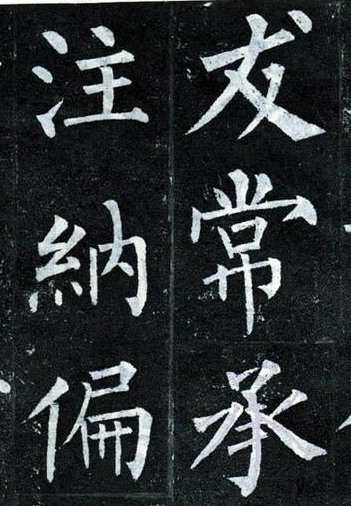 友常承
注納偏